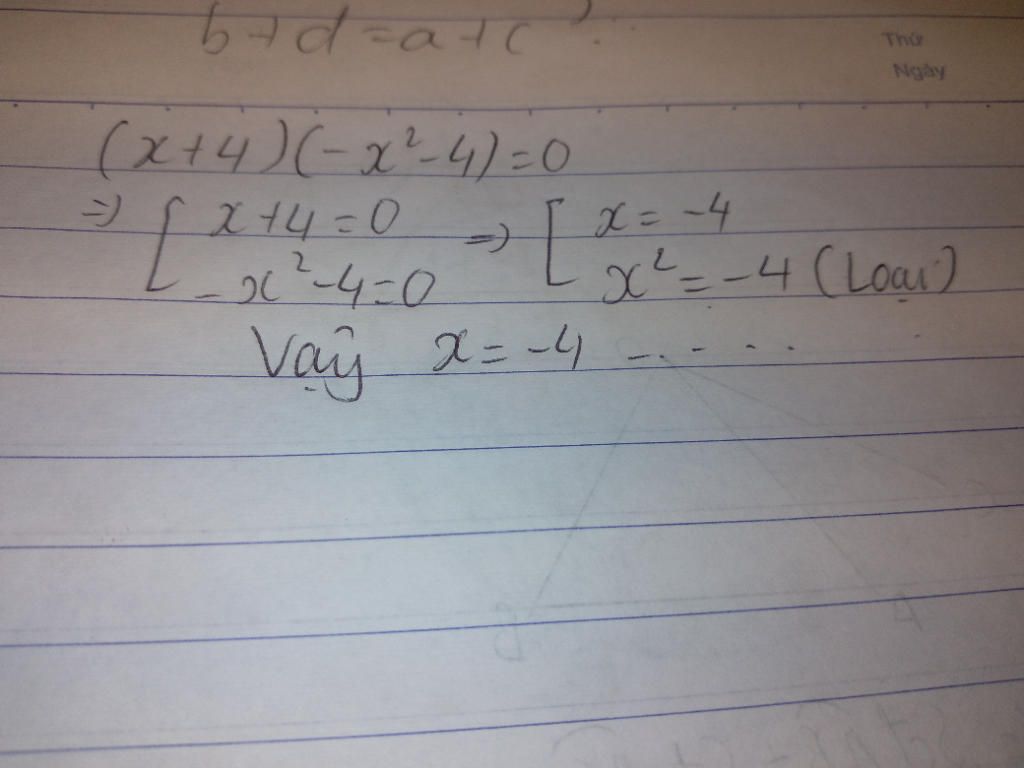 b+d=a+c
Thứ
Ngày
(x+4)(-x²-4)=0
=> [ x+4=0 => [ x=-4
-x²-4=0 x²=-4 (Loại)
Vậy x=-4 - . - . .